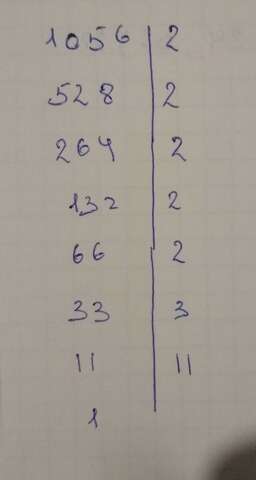 1056 | 2
528 | 2
264 | 2
132 | 2
66 | 2
33 | 3
11 | 11
1